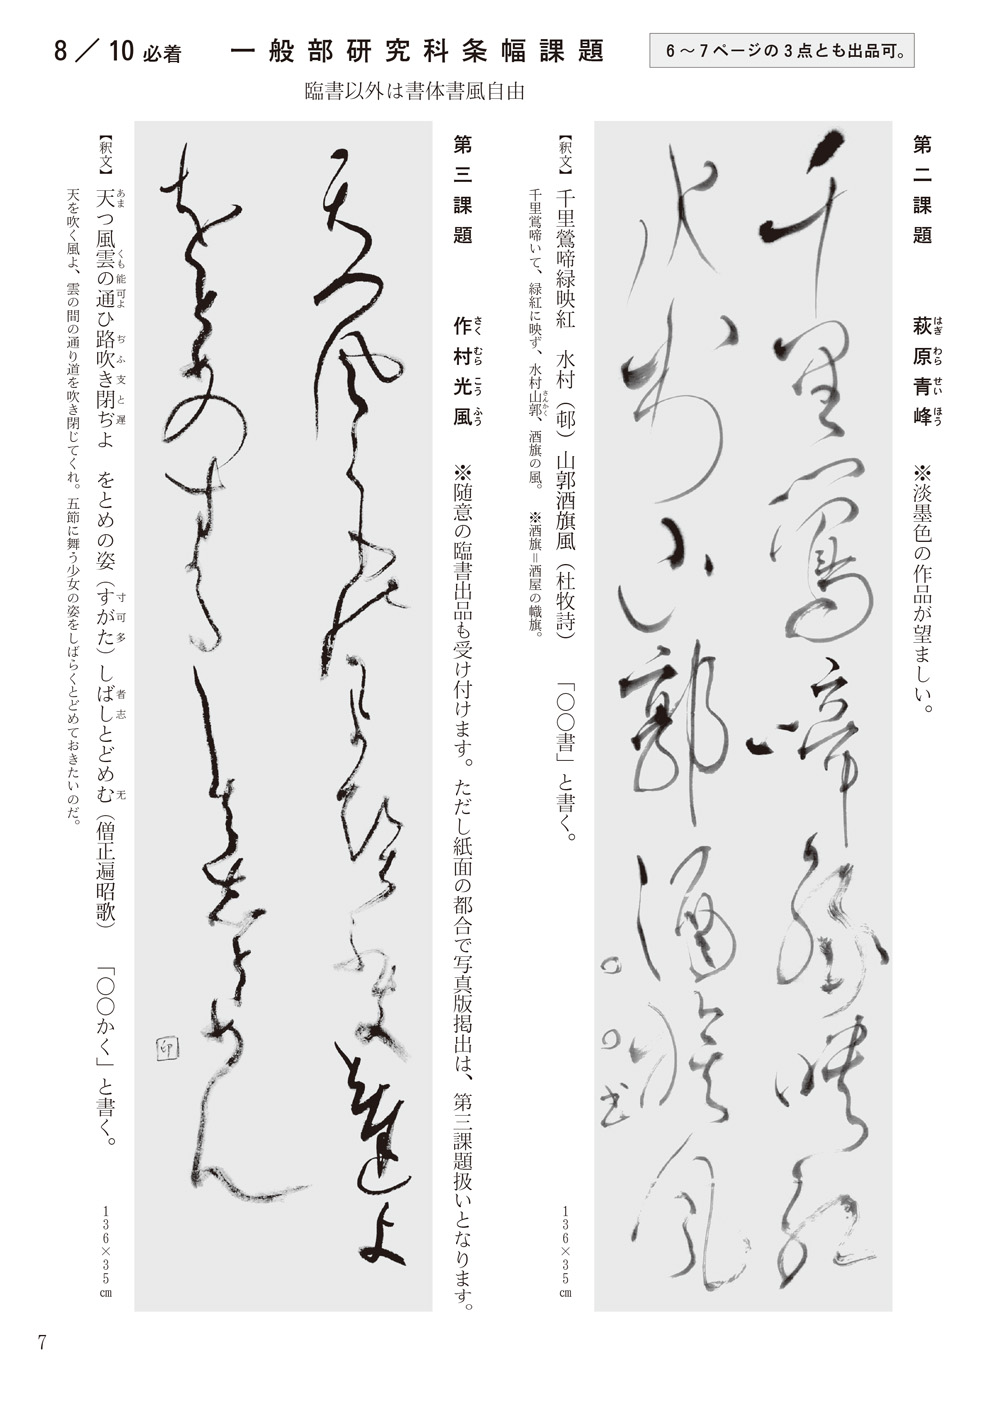 8／10必着　一般部研究科条幅課題
6～7ページの3点とも出品可。
臨書以外は書体書風自由
第二課題　萩原青峰　※淡墨色の作品が望ましい。
はぎ わら せい ほう
千里鶯啼緑映紅
水村山郭酒旗風
〇〇書
【釈文】千里鶯啼緑映紅　水村（邨）山郭酒旗風（杜牧詩）　「〇〇書」と書く。
千里鴬啼いて、緑紅に映ず、水村山郭、酒旗の風。　※酒旗＝酒屋の幟旗。
さんかく
136×35㎝
第三課題　作村光風　※随意の臨書出品も受け付けます。ただし紙面の都合で写真版掲出は、第三課題扱いとなります。
さく むら こう ふう
天つ風雲能可よひ路ふ支と遅よ
をとめの寸可多し者志とめ无
印
【釈文】天つ風雲の通ひ路吹き閉ぢよ　をとめの姿（すがた）しばしとどめむ（僧正遍昭歌）　「〇〇かく」と書く。
あま くも 能 可よ ぢ ふ 支 と 遅 寸 可 多 者 志 无
天を吹く風よ、雲の間の通り道を吹き閉じてくれ。五節に舞う少女の姿をしばらくとどめておきたいのだ。
136×35㎝
7